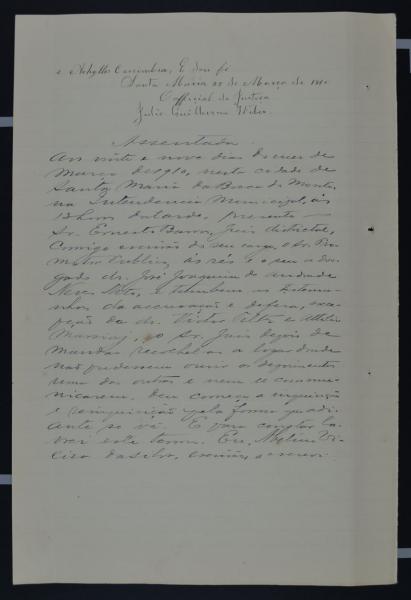 e Achylles Cassimbra, E dou fé
Santa Maria 28 de Março de 1910
O official de Justiça
Julio Guilherme Weber
Assentada
Aos vinte e nove dias do mez de
Março de 1910, nesta cidade de
Santa Maria da Bocca do Monte,
na Intendencia Municipal, ás
horas da tarde, presente o
Sr. Ernesto Barros, Juiz districtal,
comigo escrivão de seu cargo, o Sr. Pro-
motor Publico, os réos e o seu advo-
gado dr. José Joaquim de Andrade
Neves Netto, e tambem as testemu-
nhas da accusação e defeza, exce-
pção de dr. Victor
o Sr. Juiz depois de
mandar recolhel-as a logar donde
não pudessem ouvir os depoimentos
umas das outras e nem se commu-
nicarem, deu começo a inquirição
e reinquirição pela forma que adi-
ante se vê. E para constar la-
vrei este termo. Eu,
da Silva, escrivão, o escrevi.